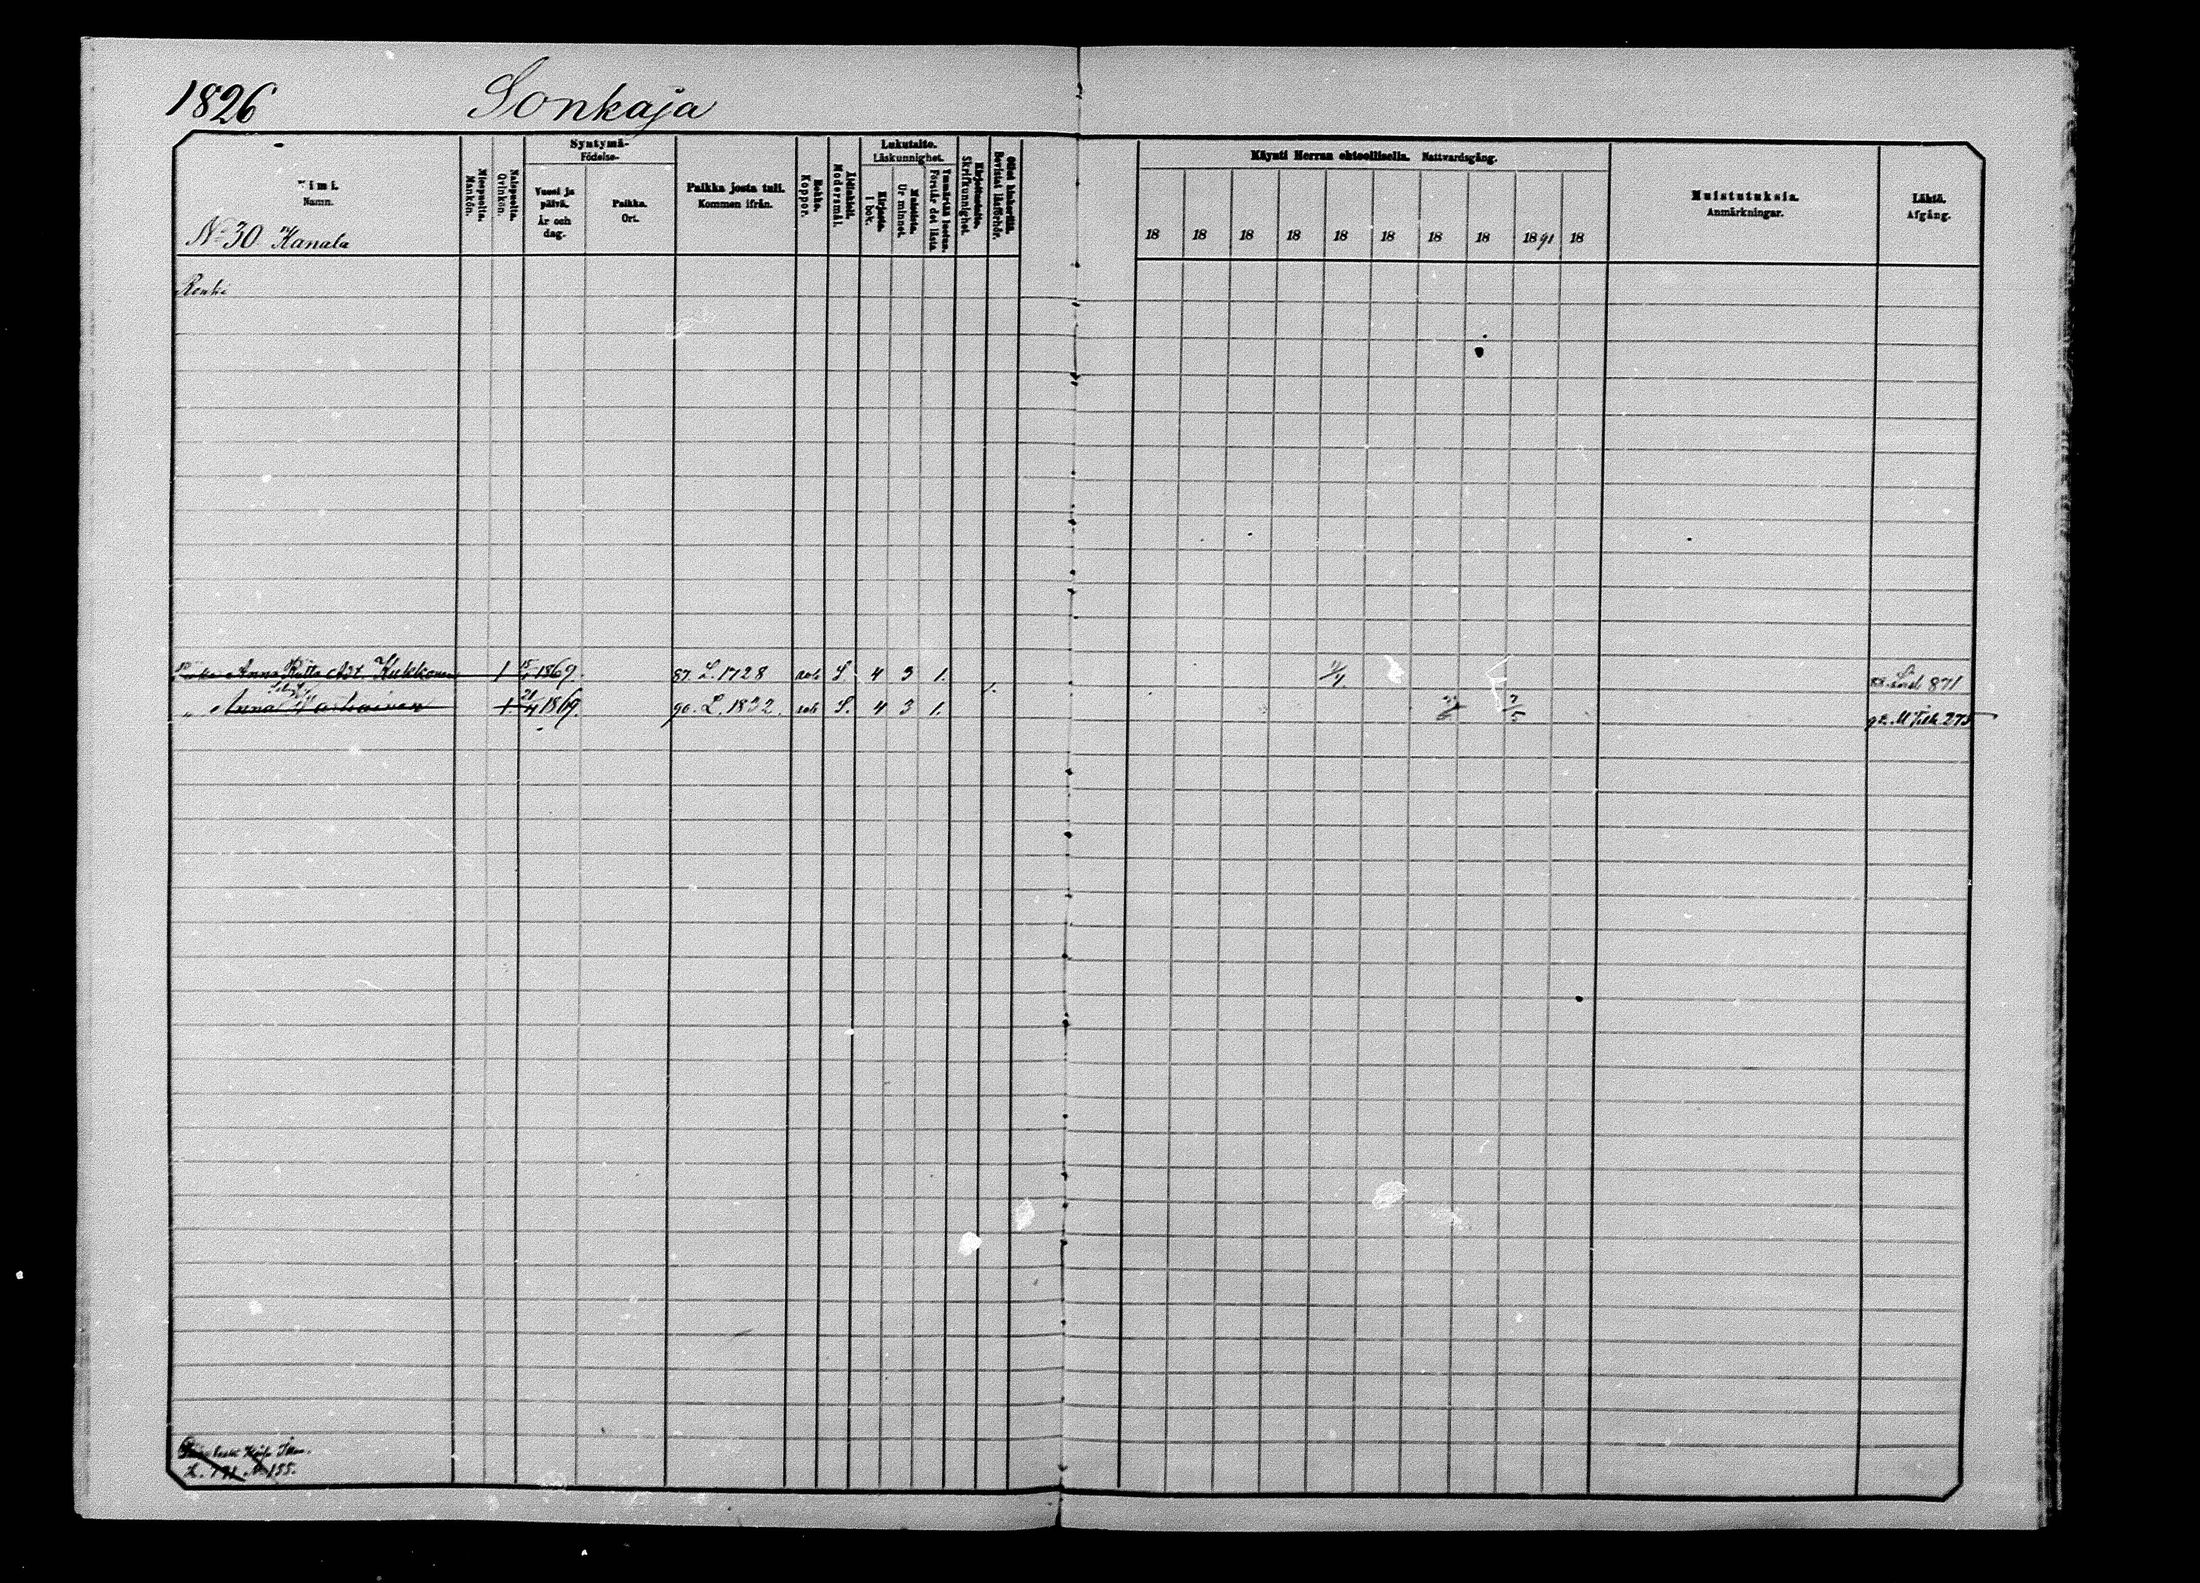 1826 Sonkaja
Nimi.
Namn.
Miespuolia.
Mankön.
Naispuolia.
Qvinkön.
Syntymä-
Födelse-
Vuosi ja
päivä.
År och
dag.
Paikka.
Ort.
Paikka josta tuli.
Kommen ifrån.
Rokko.
Koppor.
Äidinkieli.
Modersmål.
Lukutaito.
Läskunnighet.
Kirjasta.
I bok.
Muistista.
Ur minnet.
Ymmärtää luetun.
Förstår det lästa.
Kirjoitustaito.
Skrifkunnighet.
Ollut lukukerällä.
Bevistat läsförhör.
Käynti Herran ehtoollisella. Nattvardsgång.
18 18 18 18 18 18 18 18 1891 18
Muistutuksia.
Anmärkningar.
Lähtö.
Afgång.
No 30 Kanala
Renki
Anna Adt. Kukkonen 1 15 1869. 87. L. 1728 S. 4 3 1. 88. 871
„ Anna 1 21/4 1869. 90. L. 1832. S. 4 3 1. 92.
155.